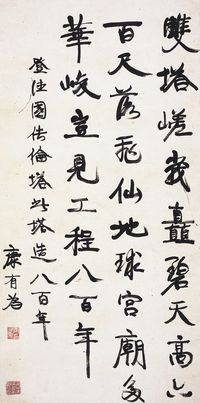 雙塔嵯峩矗碧天高六
百尺落飛仙地球宮廟多
華峻豈見工程八百年
登德國倫塔此塔造八百年
康有為